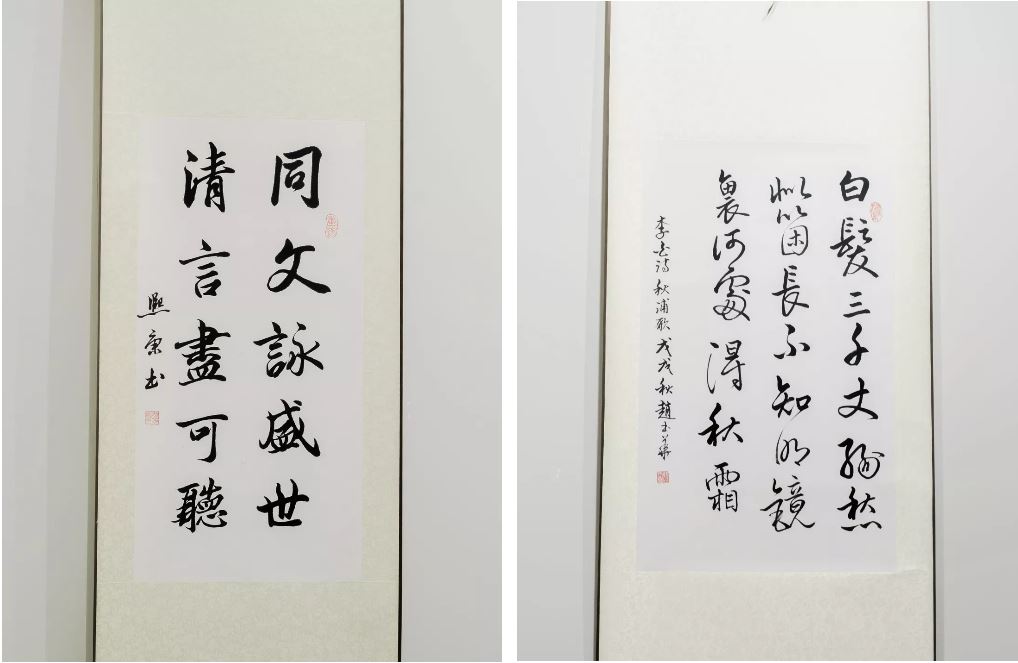 同文詠盛世
清言盡可聽
熙康书
白髮三千丈緣愁
似箇長不知明鏡
裏何處得秋霜
李白詩秋浦歌戊戌秋趙